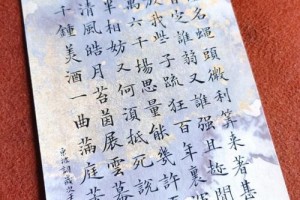 名蠅頭微利算來著甚
定誰弱又誰强且趁閒
放我些子疏狂百年裏
萬六千場思量能幾許
半相妨又何須抵死說
清風皓月苔茵展雲幕
千鍾美酒一曲滿庭芳
東坡詞滿庭